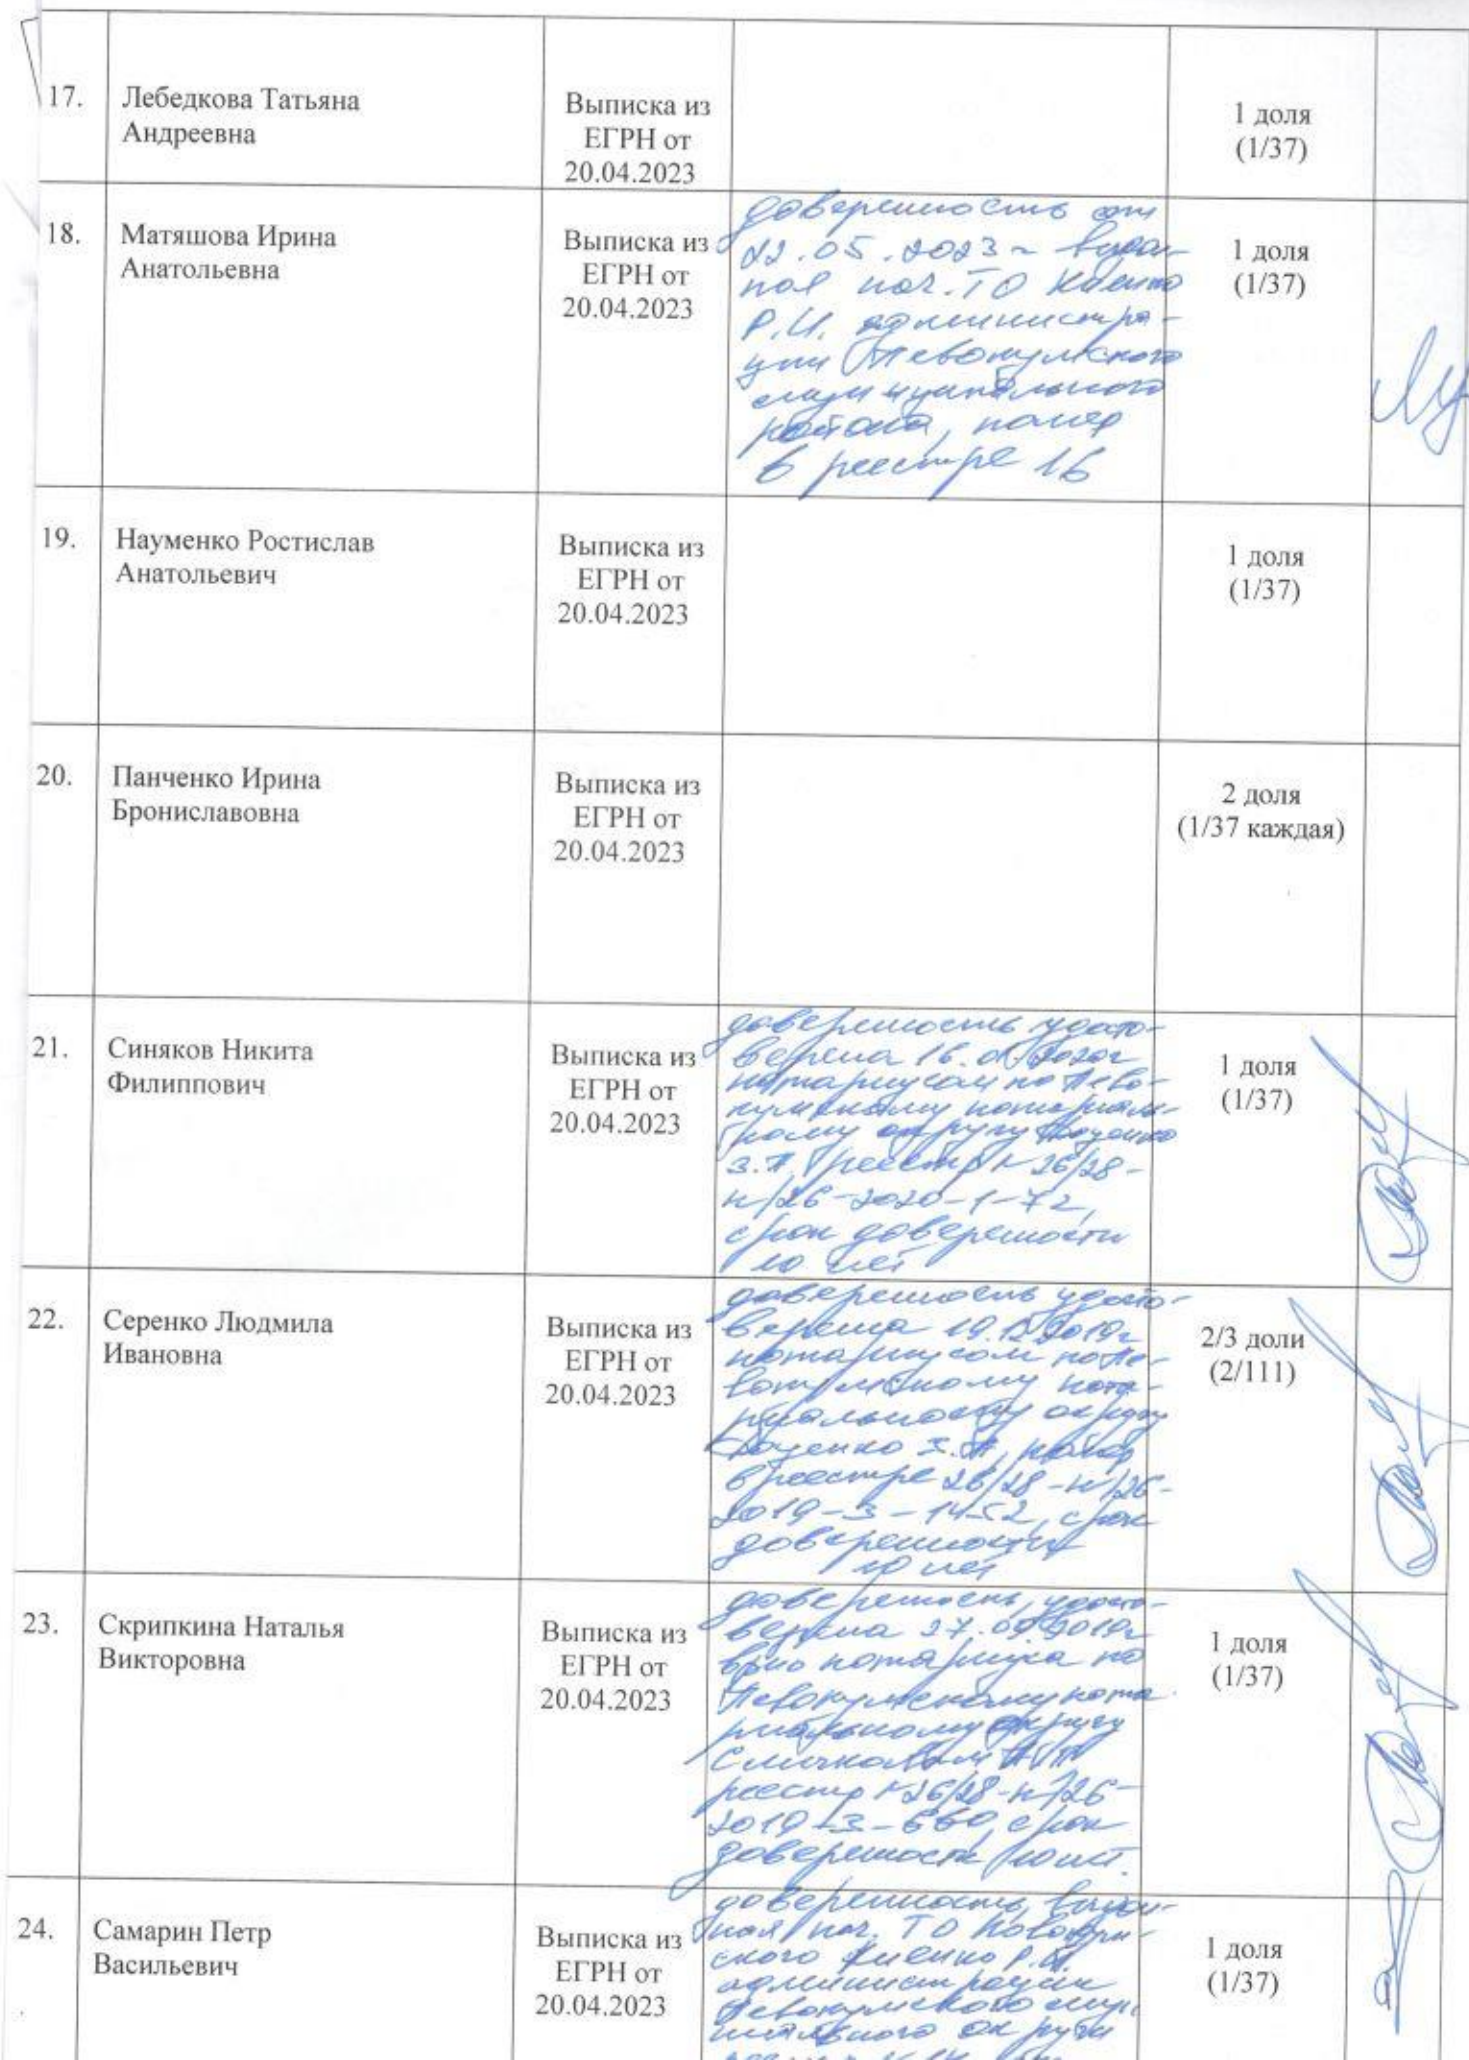 17.
Лебедкова Татьяна
Андреевна
Выписка из
ЕГРН от
20.04.2023
1 доля
(1/37)
18.
Матяшова Ирина
Анатольевна
Выписка из
ЕГРН от
20.04.2023
доверенность от
22.05.2023г выдан-
ная нач. ТО
Р.И. администра-
ции Левокумского
муниципального
района, номер
в реестре 16
1 доля
(1/37)
19.
Науменко Ростислав
Анатольевич
Выписка из
ЕГРН от
20.04.2023
1 доля
(1/37)
20.
Панченко Ирина
Брониславовна
Выписка из
ЕГРН от
20.04.2023
2 доля
(1/37 каждая)
21.
Синяков Никита
Филиппович
Выписка из
ЕГРН от
20.04.2023
доверенность удосто-
верена 16.01.2020г
нотариусом по Лево-
кумскому нотариаль-
ному округу Доценко
З.П. реестр № 26/28-
н/26-2020-1-72,
срок доверенности
10 лет
1 доля
(1/37)
22.
Серенко Людмила
Ивановна
Выписка из
ЕГРН от
20.04.2023
доверенность удосто-
верена 19.12.2019г
нотариусом по Ле-
вокумскому нота-
риальному округу
Доценко З.П, номер
в реестре 26/28-н/26-
2019-3-1452, срок
доверенности
10 лет
2/3 доли
(2/111)
23.
Скрипкина Наталья
Викторовна
Выписка из
ЕГРН от
20.04.2023
доверенность удосто-
верена 27.09.2019г
врио нотариуса по
Левокумскому нота-
риальному округу
реестр №26/28-н/26-
2019-3-660, срок
доверенности 10 лет.
1 доля
(1/37)
24.
Самарин Петр
Васильевич
Выписка из
ЕГРН от
20.04.2023
доверенность, выдан-
ная нач. ТО
ского Р.И.
администрации
Левокумского
округа
1 доля
(1/37)